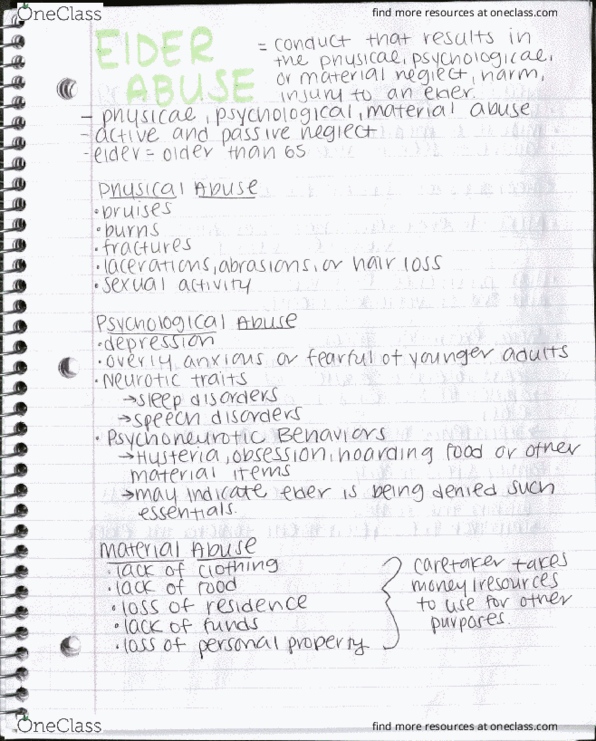 OneClass
find more resources at oneclass.com
ELDER ABUSE
= conduct that results in
the physical, psychological,
or material neglect, harm,
injury to an elder.
- physical, psychological, material abuse
- active and passive neglect
- elder = older than 65
Physical Abuse
• bruises
• burns
• fractures
• lacerations, abrasions, or hair loss
• sexual activity
Psychological Abuse
• depression
• overly anxious or fearful of younger adults
• Neurotic traits
→ sleep disorders
→ speech disorders
• Psychoneurotic Behaviors
→ Hysteria, obsession, hoarding food or other
material items
→ may indicate elder is being denied such
essentials.
Material Abuse
• lack of clothing
• lack of food
• loss of residence
• lack of funds
• loss of personal property
caretaker takes
money/resources
to use for other
purposes.
OneClass
find more resources at oneclass.com